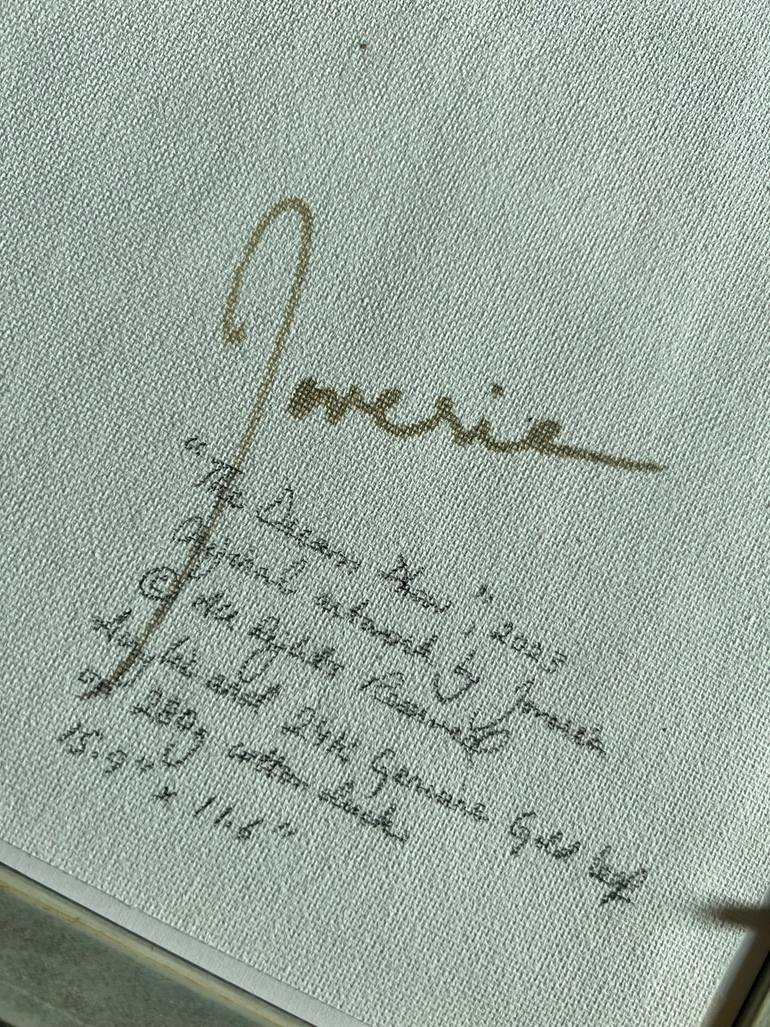 Jovesie
"The Dream Plan", 2023
Original artwork by Jovesie
© All Rights Reserved
Acrylic and 24Kt Genuine Gold leaf
on 280g cotton duck
15.9" x 11.6"